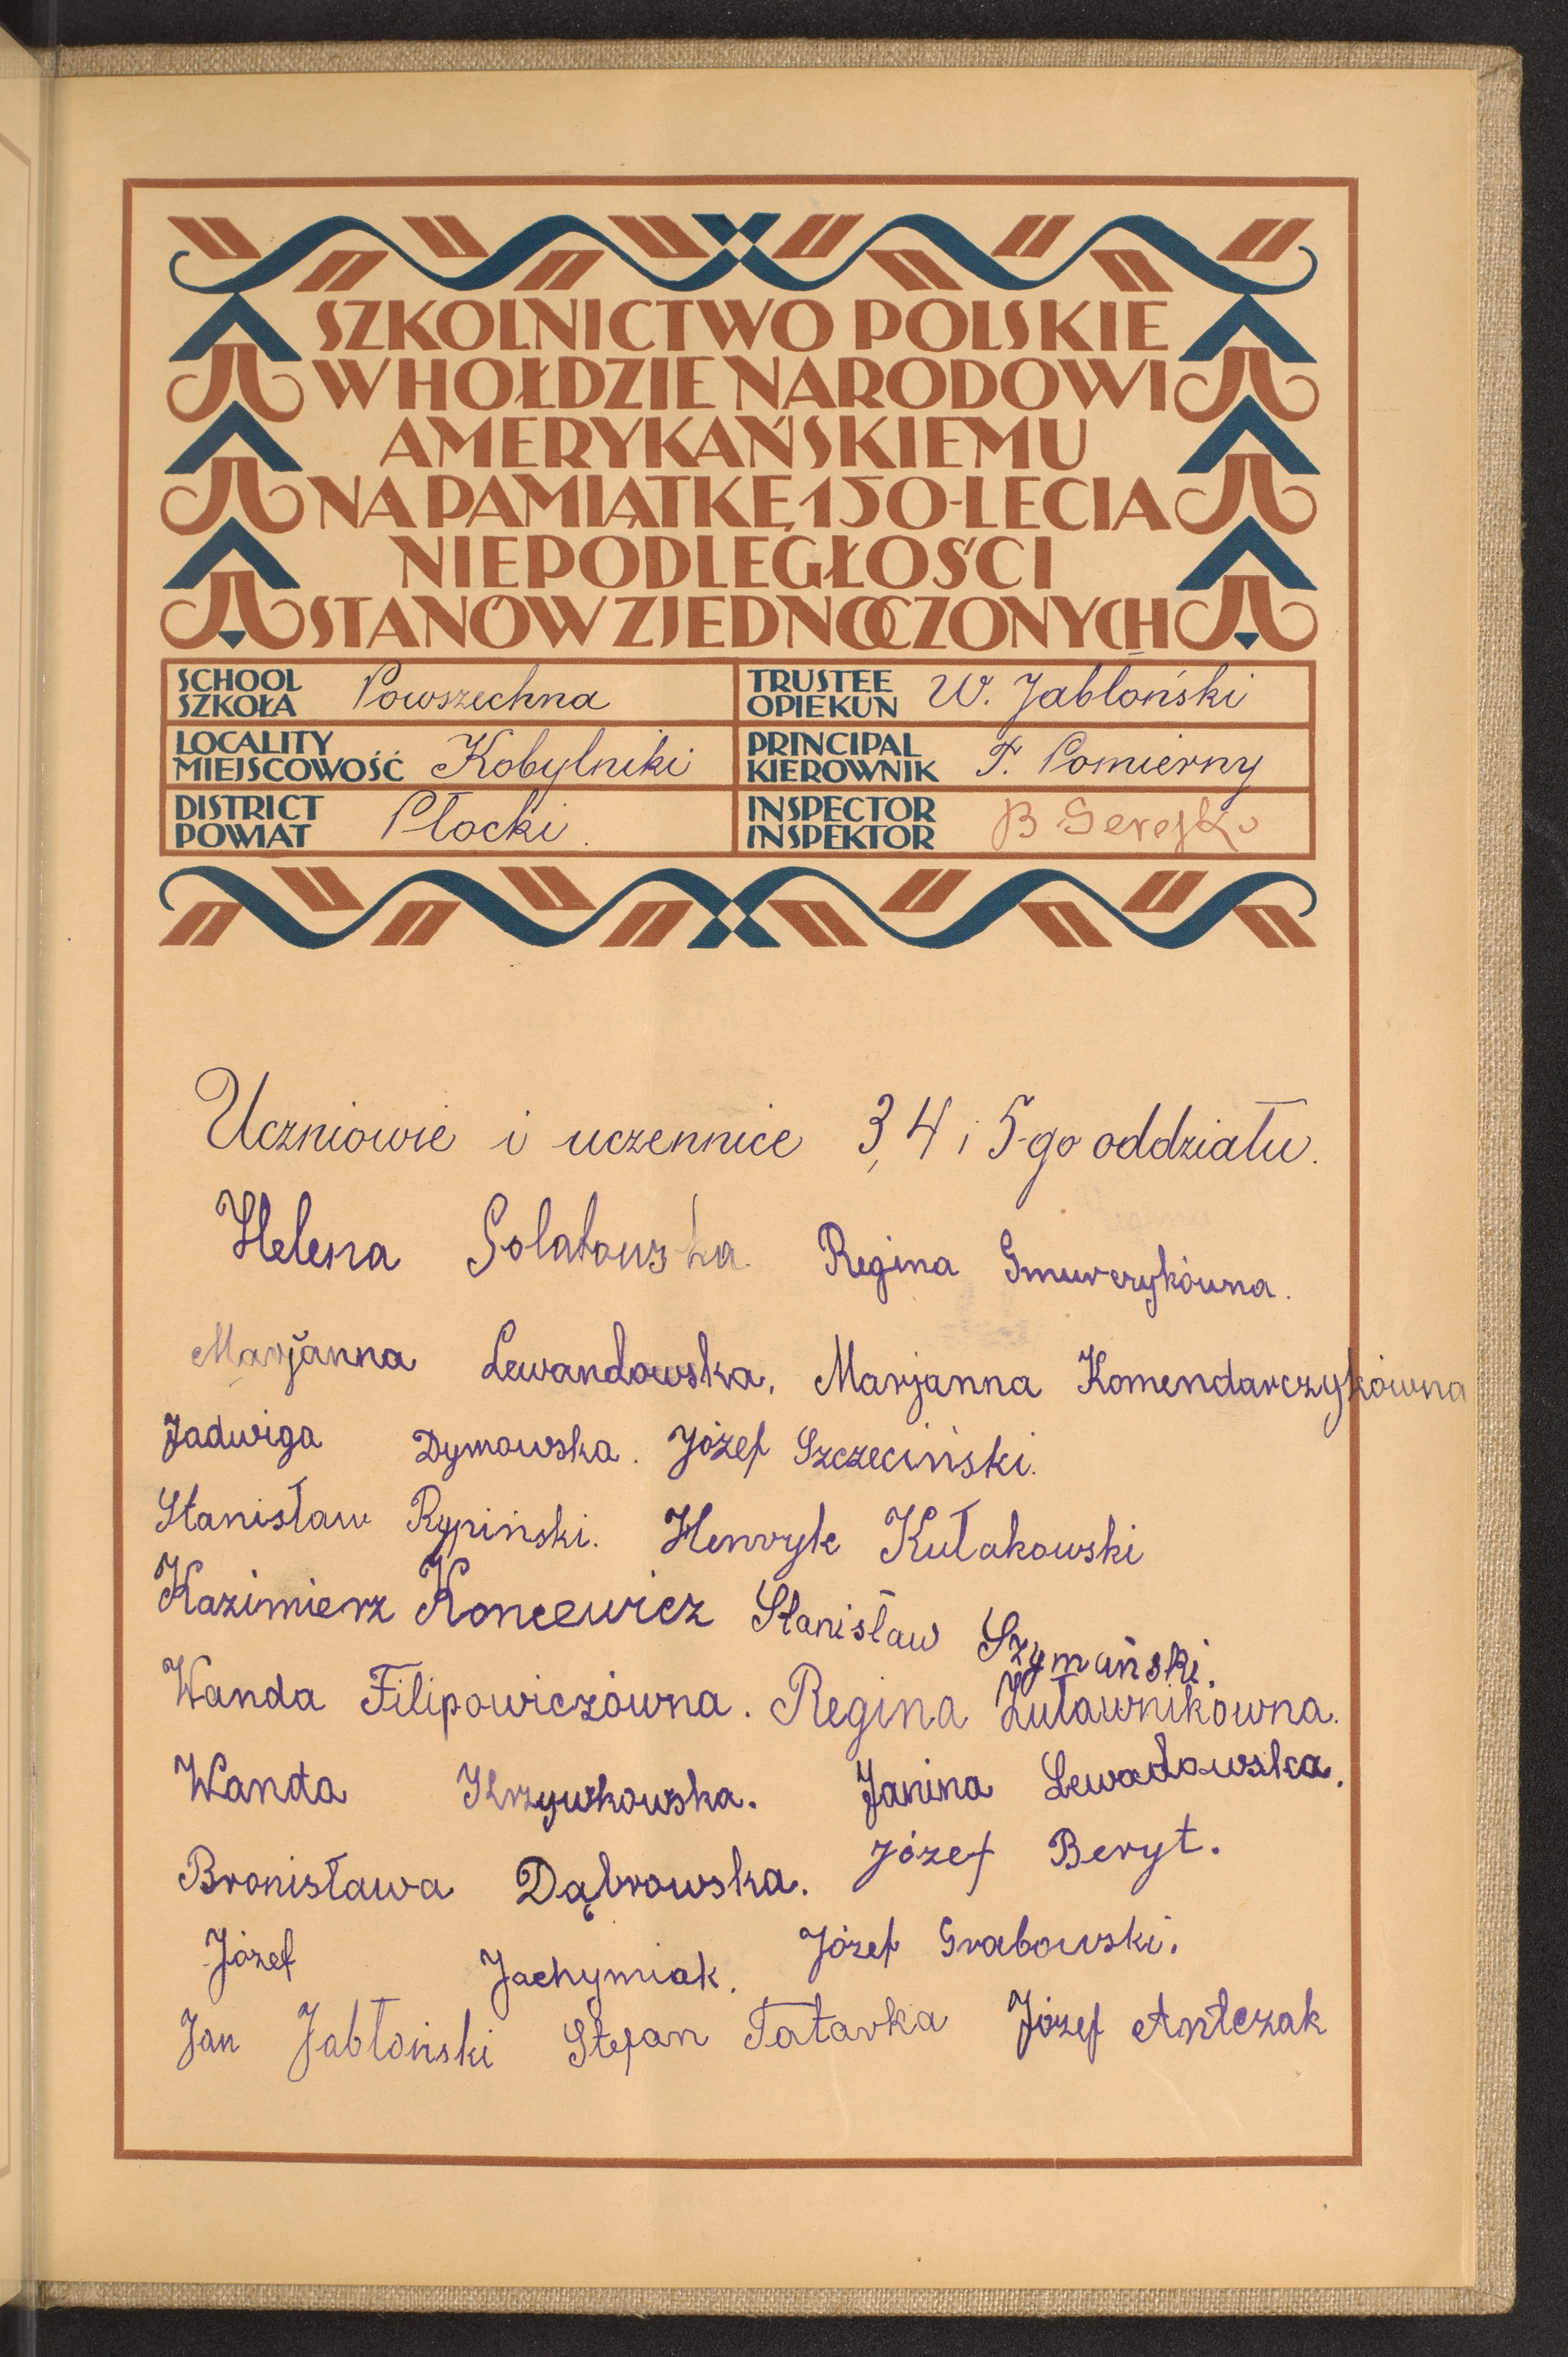 SZKOLNICTWO POLSKIE
W HOŁDZIE NARODOWI
AMERYKAŃSKIEMU
NA PAMIĄTKĘ 150-LECIA
NIEPODLEGŁOŚCI
STANÓW ZJEDNOCZONYCH
SCHOOL
SZKOŁA Powszechna
TRUSTEE
OPIEKUN W. Jabłoński
LOCALITY
MIEJSCOWOŚĆ Kobylniki
PRINCIPAL
KIEROWNIK F. Pomierny
DISTRICT
POWIAT Płocki.
INSPECTOR
INSPEKTOR B
Uczniowie i uczennice 3, 4 i 5-go oddziału.
Helena Golatowska. Regina
Marjanna Lewandowska. Marjanna Komendarczykówna
Jadwiga Dymowska. Józef Szczeciński.
Stanisław Rypiński. Henryk Kułakowski
Kazimierz Koncewicz Stanisław Szymański.
Wanda Filipowiczówna. Regina Żuławnikówna.
Wanda Krzywkowska. Janina Lewadowska.
Bronisława Dąbrowska. Józef Beryt.
Józef Jachymiak. Józef Grabowski.
Jan Jabłoński Stefan Tatarka Józef Antczak